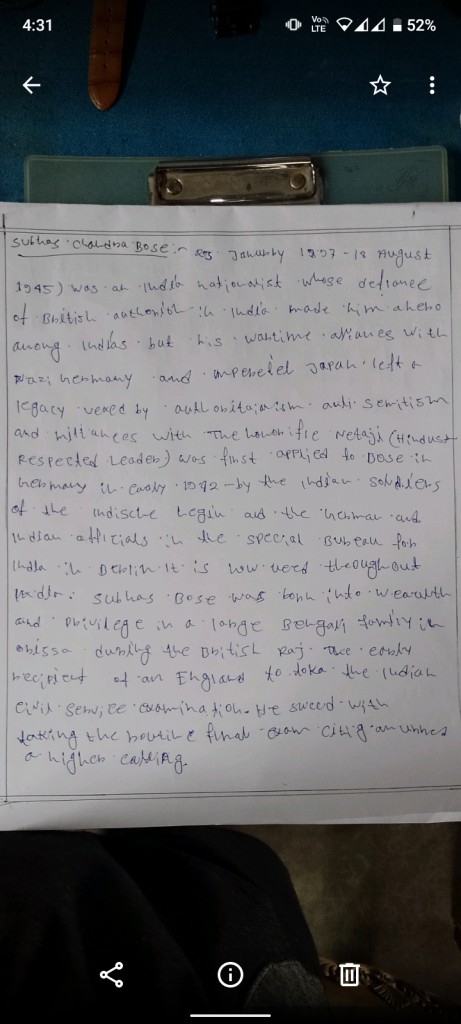 4:31
Vo LTE
52%
Subhas Chandra Bose :- 23 January 1897 - 18 August
1945) was an India nationalist whose defiance
of British in India made him a hero
among Indias but his wartime with
Nazi Germany and Japan left a
legacy by anti semitism
and with The Netaji (Hindust
Respected Leader) was first applied to Bose in
Germany in early 1942 - by the Indian Soldiers
of the Indische Legin and the German and
Indian officials in the special Bureau for
India in Berlin. It is now used throughout
India. Subhas Bose was born into
and privilege in a large Bengali family in
orissa during the British Raj. The early
recipient of an England to the Indian
Civil Service examination. He with
taking the routine final exam
a higher calling.